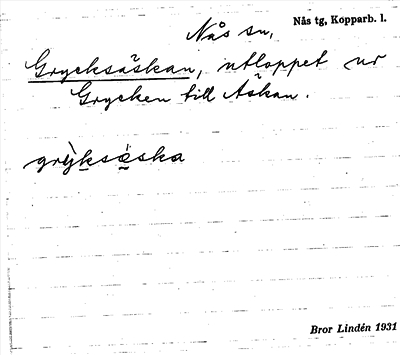 Nås sn, Nås tg, Kopparb. l.
Grycksäskan, utloppet ur
Grycken till Äskan.
grỳksǝska
Bror Lindén 1931